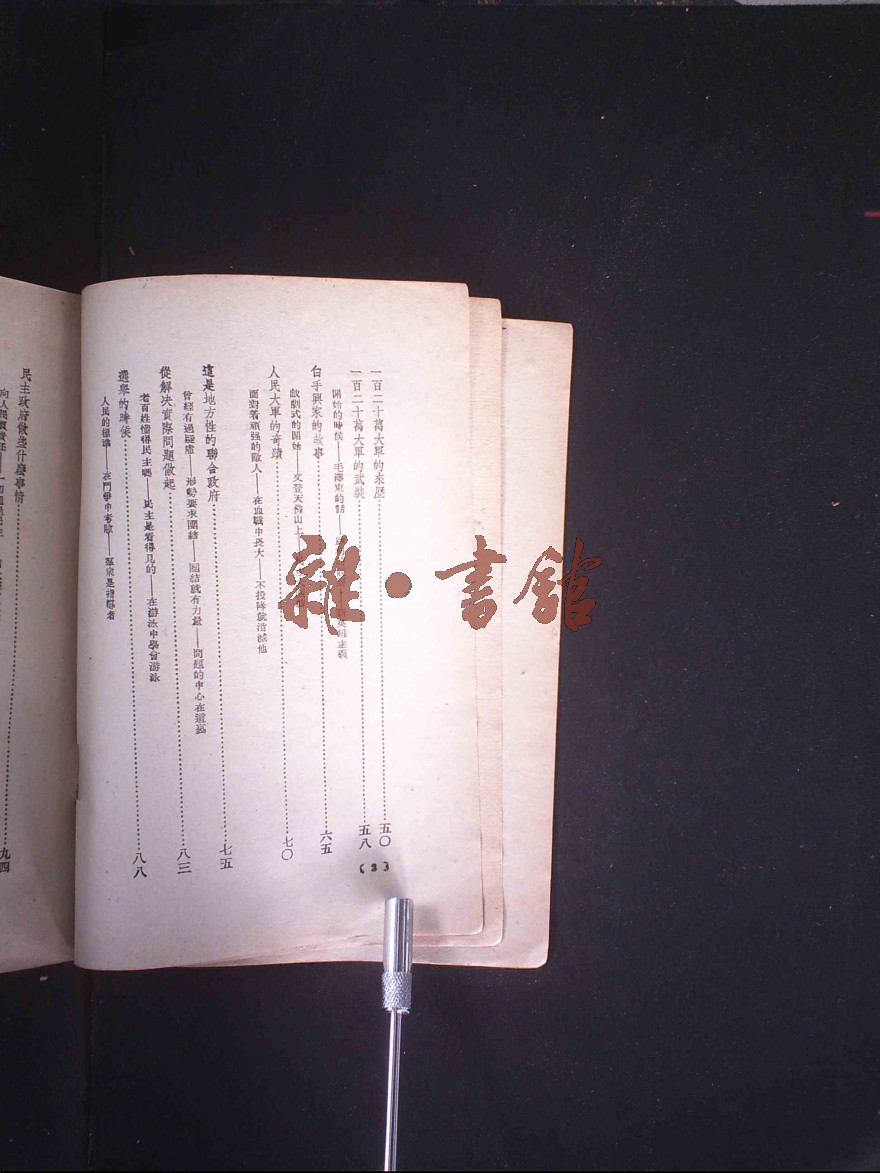 一百二十萬大軍的來歷……五〇
一百二十萬大軍的武裝……五八
開始的時候——毛澤東的話——英雄主義
白手興家的故事……六五
戲劇式的開始——文登天福山上
人民大軍的奇蹟……七〇
面對着頑强的敵人——在血戰中長大——不投降就消滅他
這是地方性的聯合政府……七五
曾經有過疑慮——形勢要求團結——團結就有力量——問題的中心在這裏
從解決實際問題做起……八三
老百姓懂得民主嗎——民主是看得見的——在游泳中學會游泳
選舉的時候……八八
人民的標準——在鬥爭中考驗——羣衆是指導者
(2)
民主政府做些什麼事情……九四
向人民負責任
雜·書館